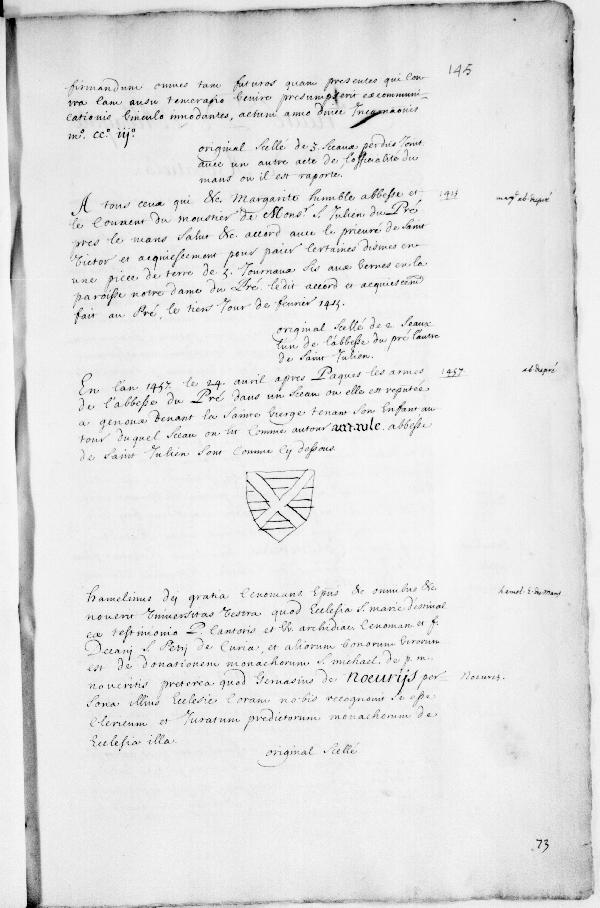 145
firmandum omnes tam futuros quam presentes qui con
tra eam ausu temerario venire presumpserit excommuni-
cationis vinculo innodantes, actum anno dnice Incarnaonis
m.º ccº iijº
original Scellé de 3. Sceaux perdus Joint
avec un autre acte de l'officialité du
mans ou il est raporté.
A tous ceux qui &c. Margarite humble abbesse et 1415 marg.te ab. du pré
le Couvent du moustier de Monsr S. Julien du Pré
pres le mans Salut &c. accord avec le prieuré de Saint
Victor et acquiescement pour paier certaines dismes en
une piece de terre de 3. Journaux Sis aux vernes en la
paroisse notre dame du Pré. ledit accord et acquiescemt
fait au Pré, le tiers Jour de fevrier 1415.
original Scellé de 2 Sceaux
l'un de l'abbesse du pré l'autre
de Saint Julien.
En l'an 1457 le 24. avril apres Paques les armes 1457 ab du pré
de l'abbesse du Pré dans un Sceau ou elle est reputée
a genoux devant la Sainte vierge tenant Son Enfant au
tour duquel Sceau on lit comme autour abbesse
de Saint Julien Sont comme Cy dessous.
hamelinus dej gratia Cenomans Epus &c omnibus &c hamel. E. du Mans
noverit Universitas vestra quod Ecclesia S. marie
ea testimonio P. Cantoris et W. archidiac Cenoman et f.
Decanj S. Petrj de Curia, et aliorum bonorum virorum
est de donationem monachorum S. michael. de p. m.
noveritis preterea quod Gervasius de Noeurijs per Noeuris.
sona illius Ecclesie Coram nobis recognovit se esse
Clericum et Juratum predictorum monachorum de
Ecclesia illa.
original Scellé
73